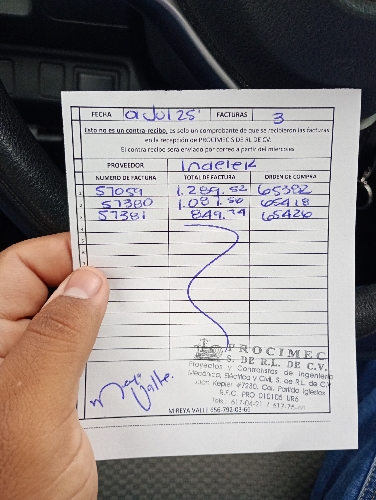 FECHA 01 Jul 25' FACTURAS 3
Esto no es un contra recibo, es solo un comprobante de que se recibieron las facturas
en la recepción de PROCIMEC S DE RL DE CV.
El contra recibo sera enviado por correo a partir del miercoles
PROVEEDOR Indelek
NUMERO DE FACTURA TOTAL DE FACTURA ORDEN DE COMPRA
1 57059 1.289.52 65382
2 57380 1.081.56 65418
3 57381 849.74 65426
4
5
PROCIMEC
S. DE R.L. DE C.V.
Proyectos y Contratistas de Ingeniería
Mecánica, Eléctrica y Civil, S. de R.L. de C.V.
Juan Kepler #7230, Col. Partido Iglesias
R.F.C. PRO 010105 UR6
Tels. 617-04-21 / 617-75-
Mireya Valle.
MIREYA VALLE 656-792-03-66